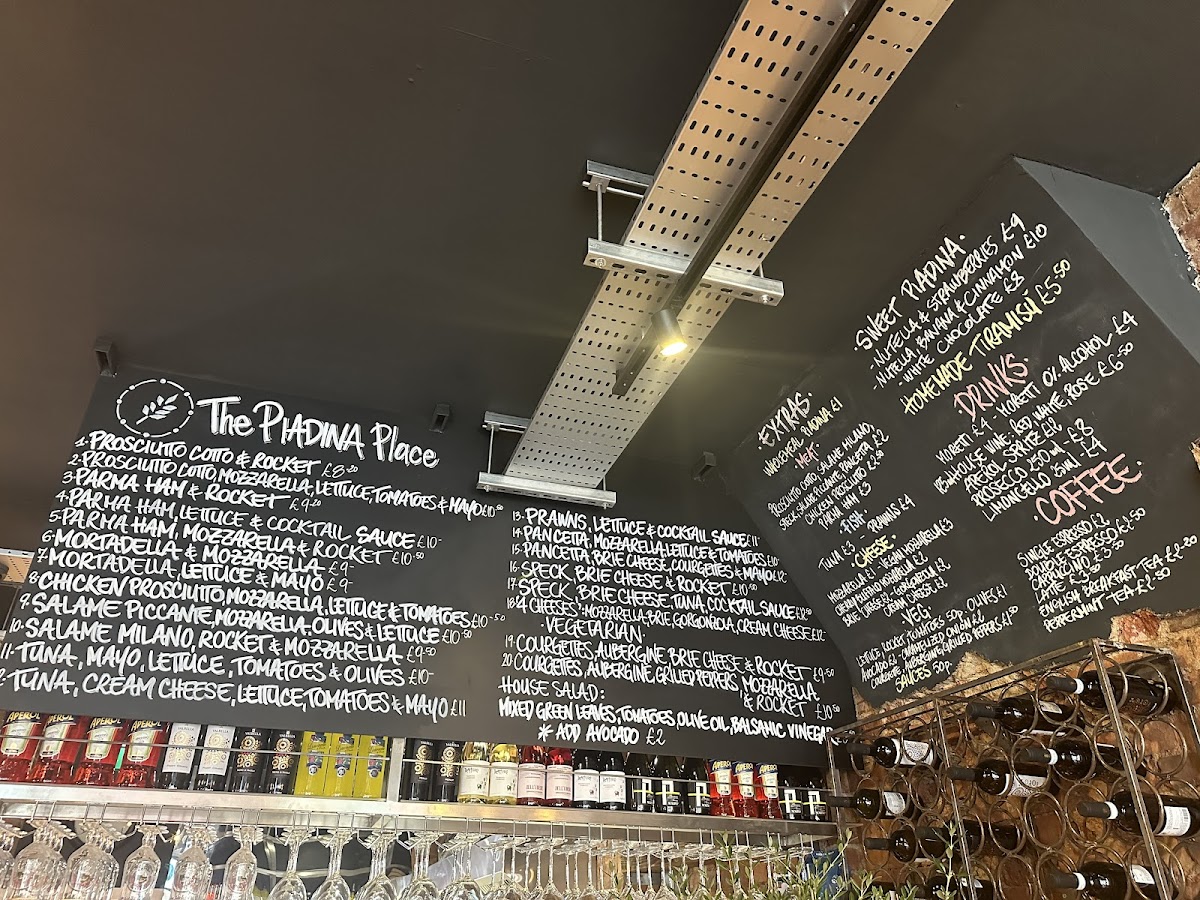 The PIADINA Place
1. PROSCIUTTO COTTO & ROCKET £8.20
2. PROSCIUTTO COTTO, MOZZARELLA, LETTUCE, TOMATOES & MAYO £10.50
3. PARMA HAM & ROCKET £9.20
4. PARMA HAM, LETTUCE & COCKTAIL SAUCE £10-
5. PARMA HAM, MOZZARELLA & ROCKET £10.50
6. MORTADELLA & MOZZARELLA £9-
7. MORTADELLA, LETTUCE & MAYO £9-
8. CHICKEN PROSCIUTTO, MOZZARELLA, LETTUCE & TOMATOES £10.50
9. SALAME PICCANTE, MOZZARELLA, OLIVES & LETTUCE £10.50
10. SALAME MILANO, ROCKET & MOZZARELLA £9.50
11. TUNA, MAYO, LETTUCE, TOMATOES & OLIVES £10-
2. TUNA, CREAM CHEESE, LETTUCE, TOMATOES & MAYO £11
13. PRAWNS, LETTUCE & COCKTAIL SAUCE £11-
14. PANCETTA, MOZZARELLA, LETTUCE & TOMATOES £10.50
15. PANCETTA, BRIE CHEESE, COURGETTES & MAYO £12
16. SPECK, BRIE CHEESE & ROCKET £10-
17. SPECK, BRIE CHEESE, TUNA, COCKTAIL SAUCE £12.50
18. "4 CHEESES": MOZZARELLA, BRIE, GORGONZOLA, CREAM CHEESE £12-
·VEGETARIAN·
19. COURGETTES, AUBERGINE, BRIE CHEESE & ROCKET £9.50
20. COURGETTES, AUBERGINE, GRILLED PEPPERS, MOZZARELLA
& ROCKET £10.50
HOUSE SALAD:
MIXED GREEN LEAVES, TOMATOES, OLIVE OIL, BALSAMIC VINEGAR
* ADD AVOCADO £2
·EXTRAS·
WHOLEMEAL PIADINA £1
·MEAT·
PROSCIUTTO COTTO, SALAME MILANO,
SPECK, SALAME PICCANTE, PANCETTA £2
CHICKEN PROSCIUTTO £2.50
PARMA HAM £3
·FISH·
TUNA £3 - PRAWNS £4
·CHEESE·
MOZZARELLA £1 - VEGAN MOZZARELLA £3
CREAMY BUFFALO MOZZARELLA £2
BRIE CHEESE £2 - GORGONZOLA £2
CREAM CHEESE £2
·VEG·
LETTUCE, ROCKET, TOMATOES 50P, OLIVES £1
AVOCADO £2 - CARAMELIZED ONION £2
COURGETTE, AUBERGINE, GRILLED PEPPERS £1.50
SAUCES 50P.
·SWEET PIADINA·
-NUTELLA & STRAWBERRIES £9
-NUTELLA, BANANA & CINNAMON £10
-WHITE CHOCOLATE £8
HOMEMADE TIRAMISÙ £5.50
·DRINKS·
MORETTI £4 - MORETTI 0% ALCOHOL £4
HOUSE WINE, RED, WHITE, ROSE £6.50
APEROL SPRITZ £12
PROSECCO 250ml - £8
LIMONCELLO 25ml - £4
·COFFEE·
SINGLE ESPRESSO £2
DOUBLE ESPRESSO £2.50
CAPPUCCINO £3.50
LATTE £3.50
ENGLISH BREAKFAST TEA £2.20
PEPPERMINT TEA £2.50
APEROL
APEROL
APEROL
APEROL